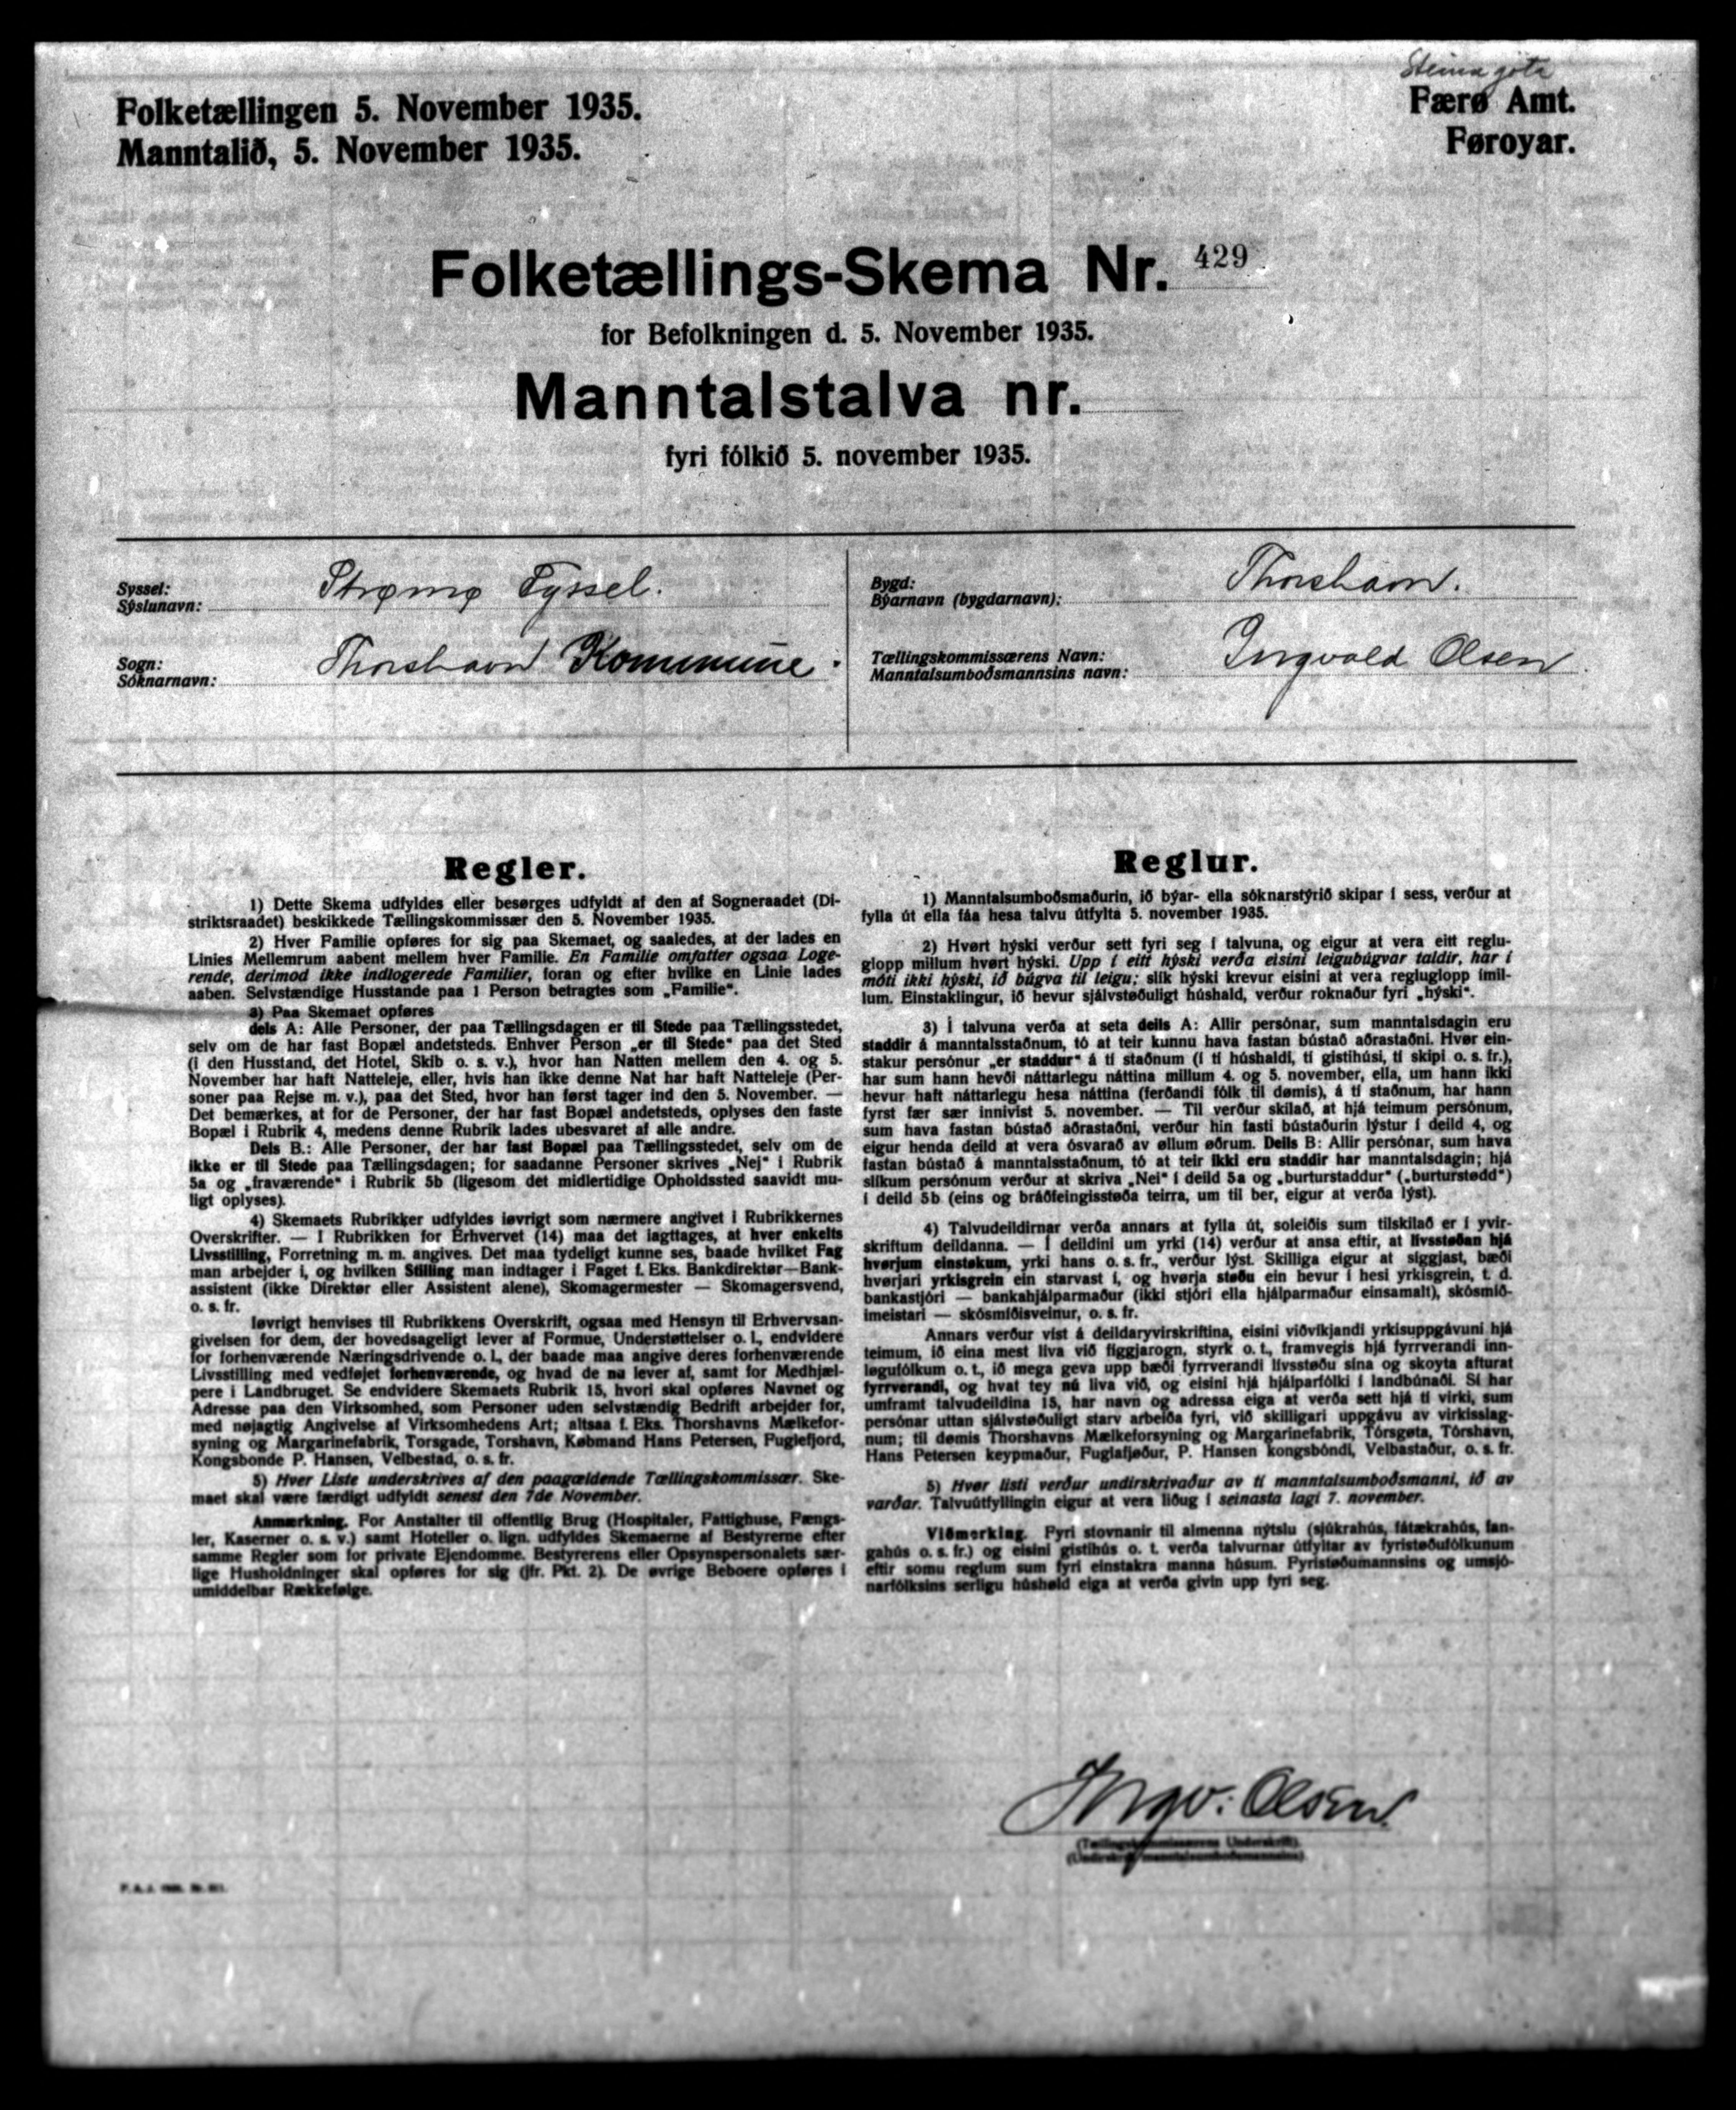 Steinagøta
Folketællingen 5. November 1935.
Manntalið, 5. November 1935.
Færø Amt.
Føroyar.
Folketællings-Skema Nr. 429
for Befolkningen d. 5. November 1935.
Manntalstalva nr.
fyri fólkið 5. november 1935.
Syssel:
Sýslunavn: Strømø Syssel.
Sogn:
Sóknarnavn: Thorshavn Kommune.
Bygd:
Býarnavn (bygdarnavn): Thorshavn.
Tællingskommissærens Navn:
Manntalsumboðsmannsins navn: Ingvald Olsen
Regler.
1) Dette Skema udfyldes eller besørges udfyldt af den af Sogneraadet (Di-
striktsraadet) beskikkede Tællingskommissær den 5. November 1935.
2) Hver Familie opføres for sig paa Skemaet, og saaledes, at der lades en
Linies Mellemrum aabent mellem hver Familie. En Familie omfatter ogsaa Loge-
rende, derimod ikke indlogerede Familier, foran og efter hvilke en Linie lades
aaben. Selvstændige Husstande paa 1 Person betragtes som „Familie“.
3) Paa Skemaet opføres
dels A: Alle Personer, der paa Tællingsdagen er til Stede paa Tællingsstedet,
selv om de har fast Bopæl andetsteds. Enhver Person „er til Stede“ paa det Sted
(i den Husstand, det Hotel, Skib o. s. v.), hvor han Natten mellem den 4. og 5.
November har haft Natteleje, eller, hvis han ikke denne Nat har haft Natteleje (Per-
soner paa Rejse m. v.), paa det Sted, hvor han først tager ind den 5. November. —
Det bemærkes, at for de Personer, der har fast Bopæl andetsteds, oplyses den faste
Bopæl i Rubrik 4, medens denne Rubrik lades ubesvaret af alle andre.
Dels B.: Alle Personer, der har fast Bopæl paa Tællingsstedet, selv om de
ikke er til Stede paa Tællingsdagen; for saadanne Personer skrives „Nej“ i Rubrik
5a og „fraværende“ i Rubrik 5b (ligesom det midlertidige Opholdssted saavidt mu-
ligt oplyses).
4) Skemaets Rubrikker udfyldes iøvrigt som nærmere angivet i Rubrikkernes
Overskrifter. — I Rubrikken for Erhvervet (14) maa det iagttages, at hver enkelts
Livsstilling, Forretning m. m. angives. Det maa tydeligt kunne ses, baade hvilket Fag
man arbejder i, og hvilken Stilling man indtager i Faget f. Eks. Bankdirektør—Bank-
assistent (ikke Direktør eller Assistent alene), Skomagermester — Skomagersvend,
o. s. fr.
Iøvrigt henvises til Rubrikkens Overskrift, ogsaa med Hensyn til Erhvervsan-
givelsen for dem, der hovedsageligt lever af Formue, Understøttelser o. l., endvidere
for forhenværende Næringsdrivende o. l., der baade maa angive deres forhenværende
Livsstilling med vedføjet forhenværende, og hvad de nu lever af, samt for Medhjæl-
pere i Landbruget. Se endvidere Skemaets Rubrik 15, hvori skal opføres Navnet og
Adresse paa den Virksomhed, som Personer uden selvstændig Bedrift arbejder for,
med nøjagtig Angivelse af Virksomhedens Art; altsaa f. Eks. Thorshavns Mælkefor-
syning og Margarinefabrik, Torsgade, Torshavn, Købmand Hans Petersen, Fuglefjord,
Kongsbonde P. Hansen, Velbestad, o. s. fr.
5) Hver Liste underskrives af den paagældende Tællingskommissær. Ske-
maet skal være færdigt udfyldt senest den 7de November.
Anmærkning. For Anstalter til offentlig Brug (Hospitaler, Fattighuse, Fængs-
ler, Kaserner o. s. v.) samt Hoteller o. lign. udfyldes Skemaerne af Bestyrerne efter
samme Regler som for private Ejendomme. Bestyrerens eller Opsynspersonalets sær-
lige Husholdninger skal opføres for sig (jfr. Pkt. 2). De øvrige Beboere opføres i
umiddelbar Rækkefølge.
Reglur.
1) Manntalsumboðsmaðurin, ið býar- ella sóknarstýrið skipar í sess, verður at
fylla út ella fáa hesa talvu útfylta 5. november 1935.
2) Hvørt hýski verður sett fyri seg í talvuna, og eigur at vera eitt reglu-
glopp millum hvørt hýski. Upp í eitt hýski verða eisini leigubúgvar taldir, har í
móti ikki hýski, ið búgva til leigu; slik hýski krevur eisini at vera regluglopp ímil-
lum. Einstaklingur, ið hevur sjálvstøðuligt húshald, verður roknaður fyri „hýski“.
3) Í talvuna verða at seta deils A: Allir persónar, sum manntalsdagin eru
staddir á manntalsstaðnum, tó at teir kunnu hava fastan bústað aðrastaðni. Hvør ein-
stakur persónur „er staddur“ á tí staðnum (í tí húshaldi, tí gistihúsi, tí skipi o. s. fr.),
har sum hann hevði náttarlegu náttina millum 4. og 5. november, ella, um hann ikki
hevur haft náttarlegu hesa náttina (ferðandi fólk til dømis), á tí staðnum, har hann
fyrst fær sær innivist 5. november. — Til verður skilað, at hjá teimum persónum,
sum hava fastan bústað aðrastaðni, verður hin fasti bústaðurin lýstur í deild 4, og
eigur henda deild at vera ósvarað av øllum øðrum. Deils B: Allir persónar, sum hava
fastan bústað á manntalsstaðnum, tó at teir ikki eru staddir har manntalsdagin; hjá
slíkum persónum verður at skriva „Nei“ í deild 5a og „burturstaddur“ („burturstødd“)
í deild 5b (eins og bráðfeingisstøða teirra, um til ber, eigur at verða lýst).
4) Talvudeildirnar verða annars at fylla út, soleiðis sum tilskilað er í yvir-
skriftum deildanna. — Í deildini um yrki (14) verður at ansa eftir, at livsstøðan hjá
hvørjum einstøkum, yrki hans o. s. fr., verður lýst. Skilliga eigur at siggjast, bæði
hvørjari yrkisgrein ein starvast í, og hvørja støðu ein hevur í hesi yrkisgrein, t. d.
bankastjóri — bankahjálparmaður (ikki stjóri ella hjálparmaður einsamalt), skósmið-
imeistari — skósmiðisveinur, o. s. fr.
Annars verður víst á deildaryvirskriftina, eisini viðvíkjandi yrkisuppgávuni hjá
teimum, ið eina mest liva við figgjarogn, styrk o. t., framvegis hjá fyrrverandi inn-
løgufólkum o. t., ið mega geva upp bæði fyrrverandi livsstøðu sína og skoyta afturat
fyrrverandi, og hvat tey nú liva við, og eisini hjá hjálparfólki í landbúnaði. Sí har
umframt talvudeildina 15, har navn og adressa eiga at verða sett hjá tí virki, sum
persónar uttan sjálvstøðuligt starv arbeiða fyri, við skilligari uppgávu av virkisslag-
num; til dømis Thorshavns Mælkeforsyning og Margarinefabrik, Tórsgøta, Tórshavn,
Hans Petersen keypmaður, Fuglafjøður, P. Hansen kongsbóndi, Velbastaður, o. s. fr.
5) Hvør listi verður undirskrivaður av tí manntalsumboðsmanni, ið av
varðar. Talvuútfyllingin eigur at vera liðug í seinasta lagi 7. november.
Viðmerking. Fyri stovnanir til almenna nýtslu (sjúkrahús, fátækrahús, fan-
gahús o. s. fr.) og eisini gistihús o. t. verða talvurnar útfyltar av fyristøðufólkunum
eftir somu reglum sum fyri einstakra manna húsum. Fyristøðumannsins og umsjó-
narfólksins serligu húshøld eiga at verða givin upp fyri seg.
Ingv. Olsen
(Tællingskommissærens Underskrift).
(Undirskrift manntalsumboðsmannsins)